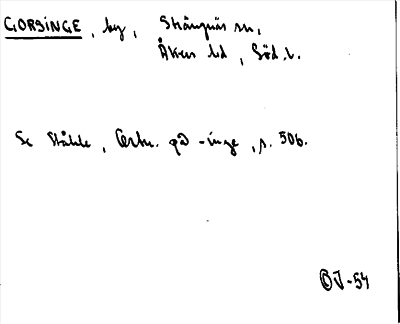 GORSINGE, by, Strängnäs sn,
Åkers hd, Söd. l.
Se Ståhle, Ortn. på -inge, s. 506.
OJ-54